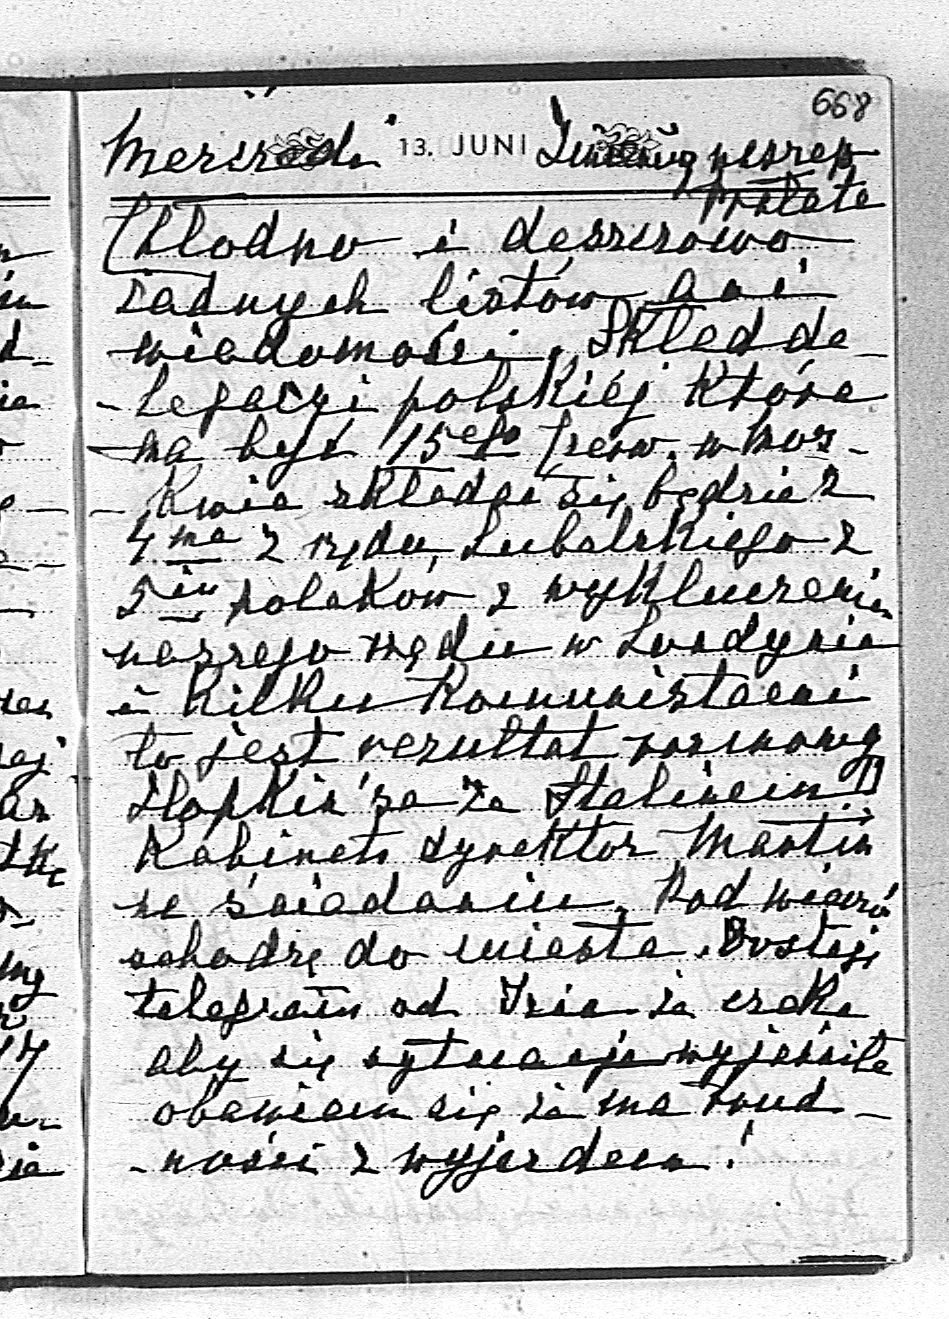 668
Mercredi 13. JUNI Imieniny naszego
Prałata
Chłodno i deszczowo
żadnych listów ani
wiadomości. Skład de-
-legacyi polskiéj która
ma być 15ego czerw. w Mos-
-kwie składać się będzie z
4ma z rządu Lubelskiego z
5iu polaków z wykluczeniem
naszego rządu w Londynie
i kilku Komunistami
to jest rezultat rozmowy
Hopkin'sa ze Stalinem!!
Kabinets dyrektor Martin
na śniadaniu. Pod wieczór
schodzę do miasta. Dostaję
telegram od że czeka
aby się sytuacja wyjaśniła
obawiam się że ma trud-
-ności z wyjazdem!